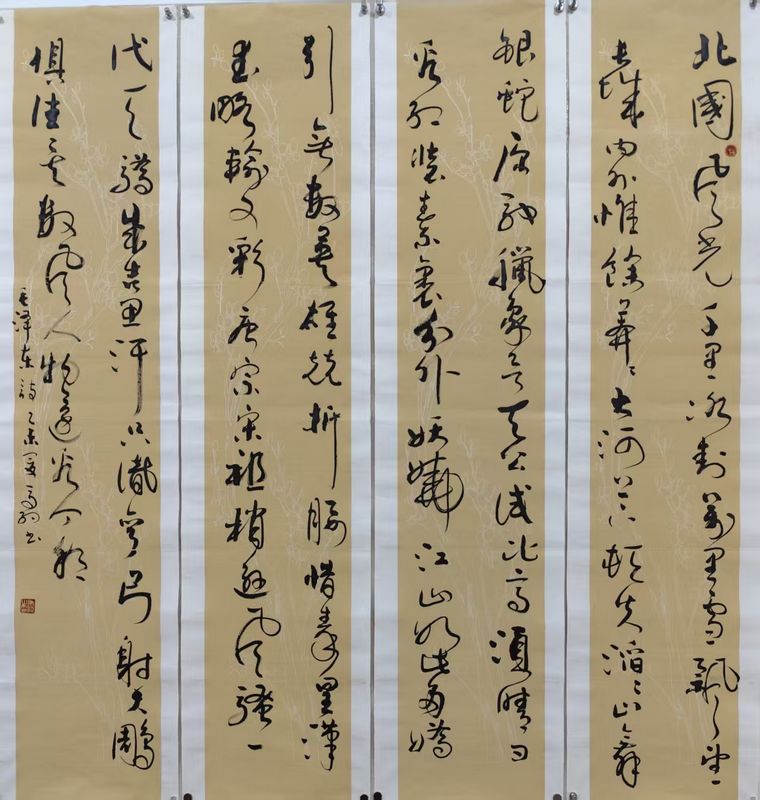 北國風光千里冰封萬里雪飄望
長城内外惟餘莽〻大河上下頓失滔〻山舞
銀蛇原馳臘象欲与天公試比高須晴日
看紅裝素裹分外妖嬈江山如此多嬌
引無數英雄競折腰惜秦皇漢
武略輸文彩唐宗宋祖稍遜風騷一
代天驕成吉思汗只識彎弓射大鵰
俱往矣數風人物還看今朝
毛澤東詩乙未夏書